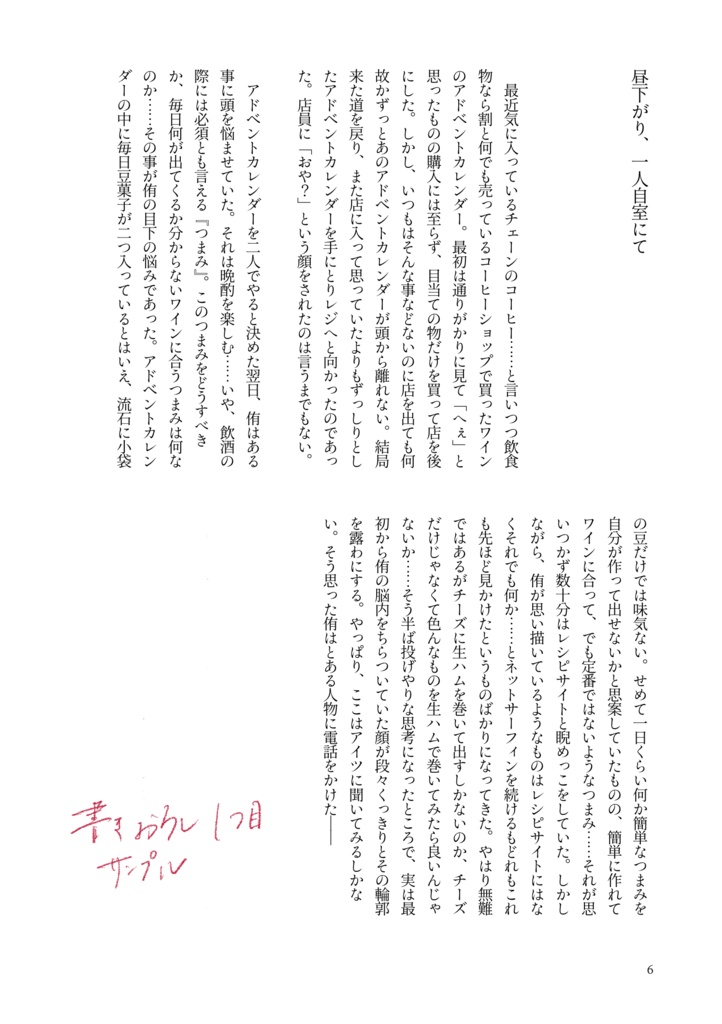 昼下がり、一人自室にて
　最近気に入っているチェーンのコーヒー……と言いつつ飲食
物なら割と何でも売っているコーヒーショップで買ったワイン
のアドベントカレンダー。最初は通りがかりに見て「へぇ」と
思ったものの購入には至らず、目当ての物だけを買って店を後
にした。しかし、いつもはそんな事などないのに店を出ても何
故かずっとあのアドベントカレンダーが頭から離れない。結局
来た道を戻り、また店に入って思っていたよりもずっしりとし
たアドベントカレンダーを手にとりレジへと向かったのであっ
た。店員に「おや？」という顔をされたのは言うまでもない。
　アドベントカレンダーを二人でやると決めた翌日、侑はある
事に頭を悩ませていた。それは晩酌を楽しむ……いや、飲酒の
際には必須とも言える『つまみ』。このつまみをどうすべき
か、毎日何が出てくるか分からないワインに合うつまみは何な
のか……その事が侑の目下の悩みであった。アドベントカレン
ダーの中に毎日豆菓子が二つ入っているとはいえ、流石に小袋
の豆だけでは味気ない。せめて一日くらい何か簡単なつまみを
自分が作って出せないかと思案していたものの、簡単に作れて
ワインに合って、でも定番ではないようなつまみ……それが思
いつかず数十分はレシピサイトと睨めっこをしていた。しかし
ながら、侑が思い描いているようなものはレシピサイトにはな
くそれでも何か……とネットサーフィンを続けるもどれもこれ
も先ほど見かけたというものばかりになってきた。やはり無難
ではあるがチーズに生ハムを巻いて出すしかないのか、チーズ
だけじゃなくて色んなものを生ハムで巻いてみたら良いんじゃ
ないか……そう半ば投げやりな思考になったところで、実は最
初から侑の脳内をちらついていた顔が段々くっきりとその輪郭
を露わにする。やっぱり、ここはアイツに聞いてみるしかな
い。そう思った侑はとある人物に電話をかけた――
書きおろし1つ目
サンプル
6